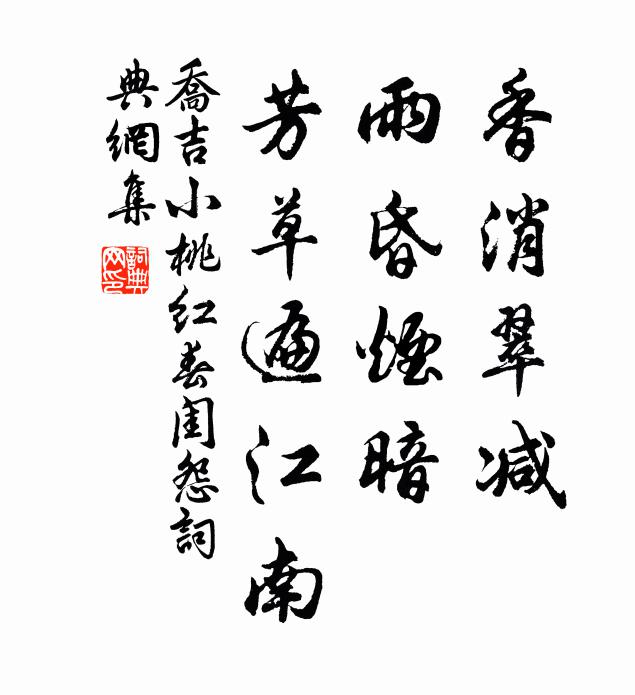 香消翠減
雨昏煙暗
芳草遍江南
喬吉小桃紅春闺怨詞
典網集
詞典网印